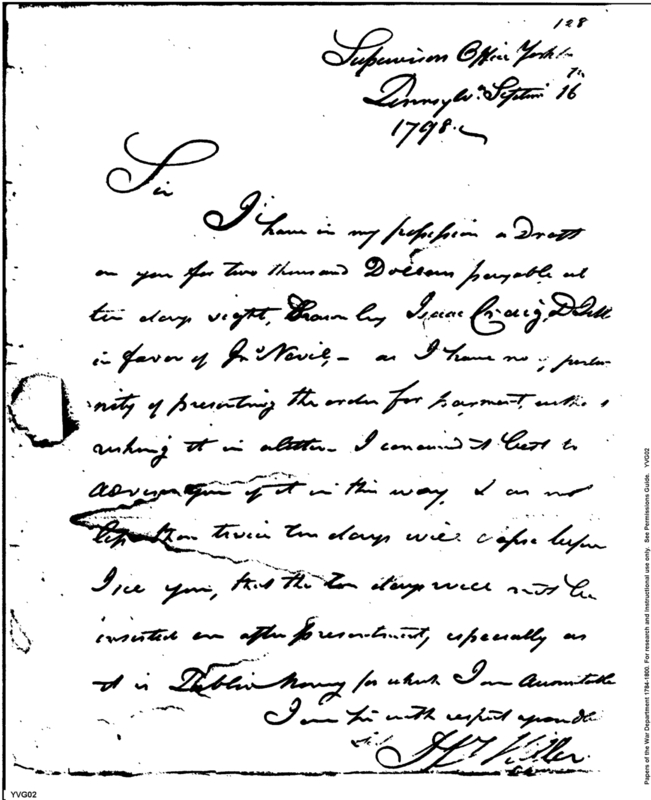 128
Supervisors Office York
Pennsylva. Septem 16th
1798.
Sir
I have in my possession a Draft
on you for two thousand Dollars payable at
ten days sight, Drawn by Isaac Craig, D
in favor of Jno. Nevil, - as I have no
nity of presenting the order for payment,
risking it in a letter I conceived it best to
advise you of it in this way, & as not
less than twice ten days will elapse before
I see you, that the ten days will not be
insisted on after presentment, especially as
it is Public Money for which I am Accountable
I am Sir with respect your
H Miller
YVG02
Papers of the War Department 1784-1800. For research and instructional use only. See Permissions Guide. YVG02